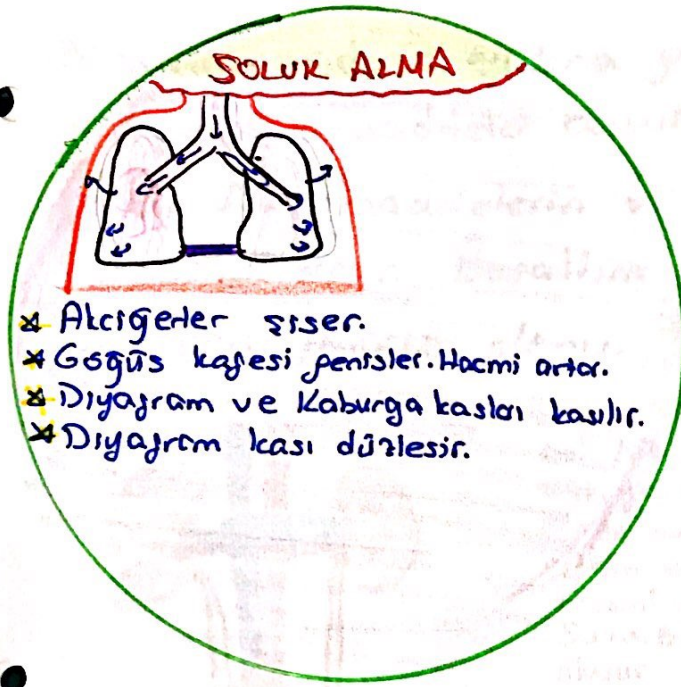 SOLUK ALMA
Akciğerler şişer.
Göğüs kafesi genişler. Hacmi artar.
Diyafram ve Kaburga kasları kasılır.
Diyafram kası düzleşir.